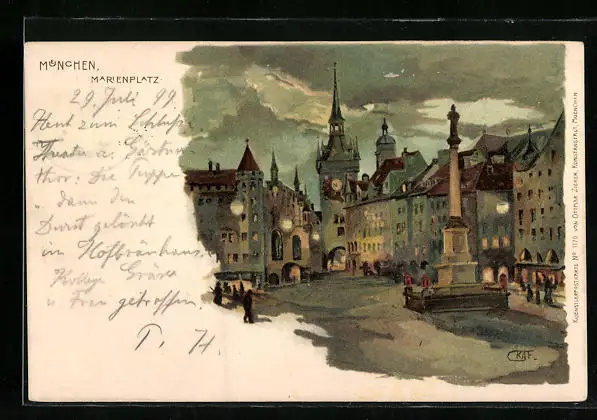 MÜNCHEN,
MARIENPLATZ.
29. Juli 99
Heut zum Schluss
Theater a. Gärtner
thor: Die Puppe
u dann den
Durst gelöscht
im Hofbräuhaus.
Kollege
u Frau getroffen.
T. H.
C KAEF.
KUENSTLERPOSTKARTE No 1170 VON OTTMAR ZIEHER, KUNSTANSTALT, MUENCHEN